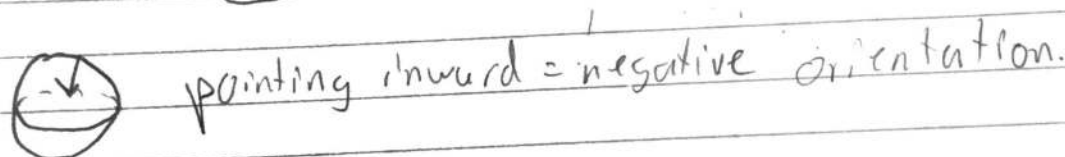 pointing inward = negative orientation.